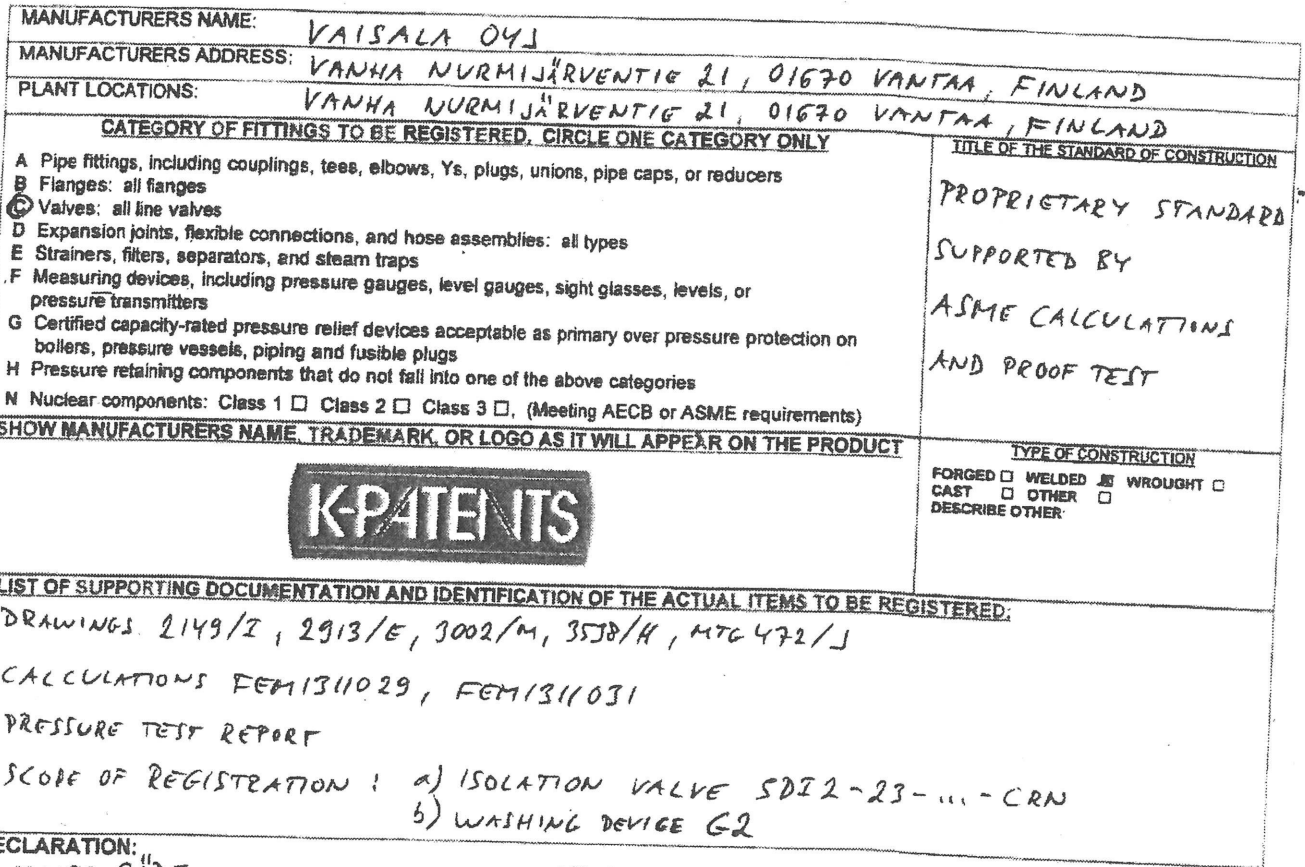 MANUFACTURERS NAME: VAISALA OYJ
MANUFACTURERS ADDRESS: VANHA NURMIJÄRVENTIE 21, 01670 VANTAA, FINLAND
PLANT LOCATIONS: VANHA NURMIJÄRVENTIE 21, 01670 VANTAA, FINLAND
CATEGORY OF FITTINGS TO BE REGISTERED, CIRCLE ONE CATEGORY ONLY
A Pipe fittings, including couplings, tees, elbows, Ys, plugs, unions, pipe caps, or reducers
B Flanges: all flanges
C Valves: all line valves
D Expansion joints, flexible connections, and hose assemblies: all types
E Strainers, filters, separators, and steam traps
F Measuring devices, including pressure gauges, level gauges, sight glasses, levels, or
pressure transmitters
G Certified capacity-rated pressure relief devices acceptable as primary over pressure protection on
boilers, pressure vessels, piping and fusible plugs
H Pressure retaining components that do not fall into one of the above categories
N Nuclear components: Class 1 ☐ Class 2 ☐ Class 3 ☐, (Meeting AECB or ASME requirements)
TITLE OF THE STANDARD OF CONSTRUCTION
PROPRIETARY STANDARD
SUPPORTED BY
ASME CALCULATIONS
AND PROOF TEST
SHOW MANUFACTURERS NAME, TRADEMARK, OR LOGO AS IT WILL APPEAR ON THE PRODUCT
K-PATENTS
TYPE OF CONSTRUCTION
FORGED ☐ WELDED ☒ WROUGHT ☐
CAST ☐ OTHER ☐
DESCRIBE OTHER
LIST OF SUPPORTING DOCUMENTATION AND IDENTIFICATION OF THE ACTUAL ITEMS TO BE REGISTERED:
DRAWINGS 2149/I, 2913/E, 3002/M, 3538/H, MTG 472/J
CALCULATIONS FEM1311029, FEM1311031
PRESSURE TEST REPORT
SCOPE OF REGISTRATION: a) ISOLATION VALVE SDI2-23-...-CRN
b) WASHING DEVICE G2
ECLARATION: